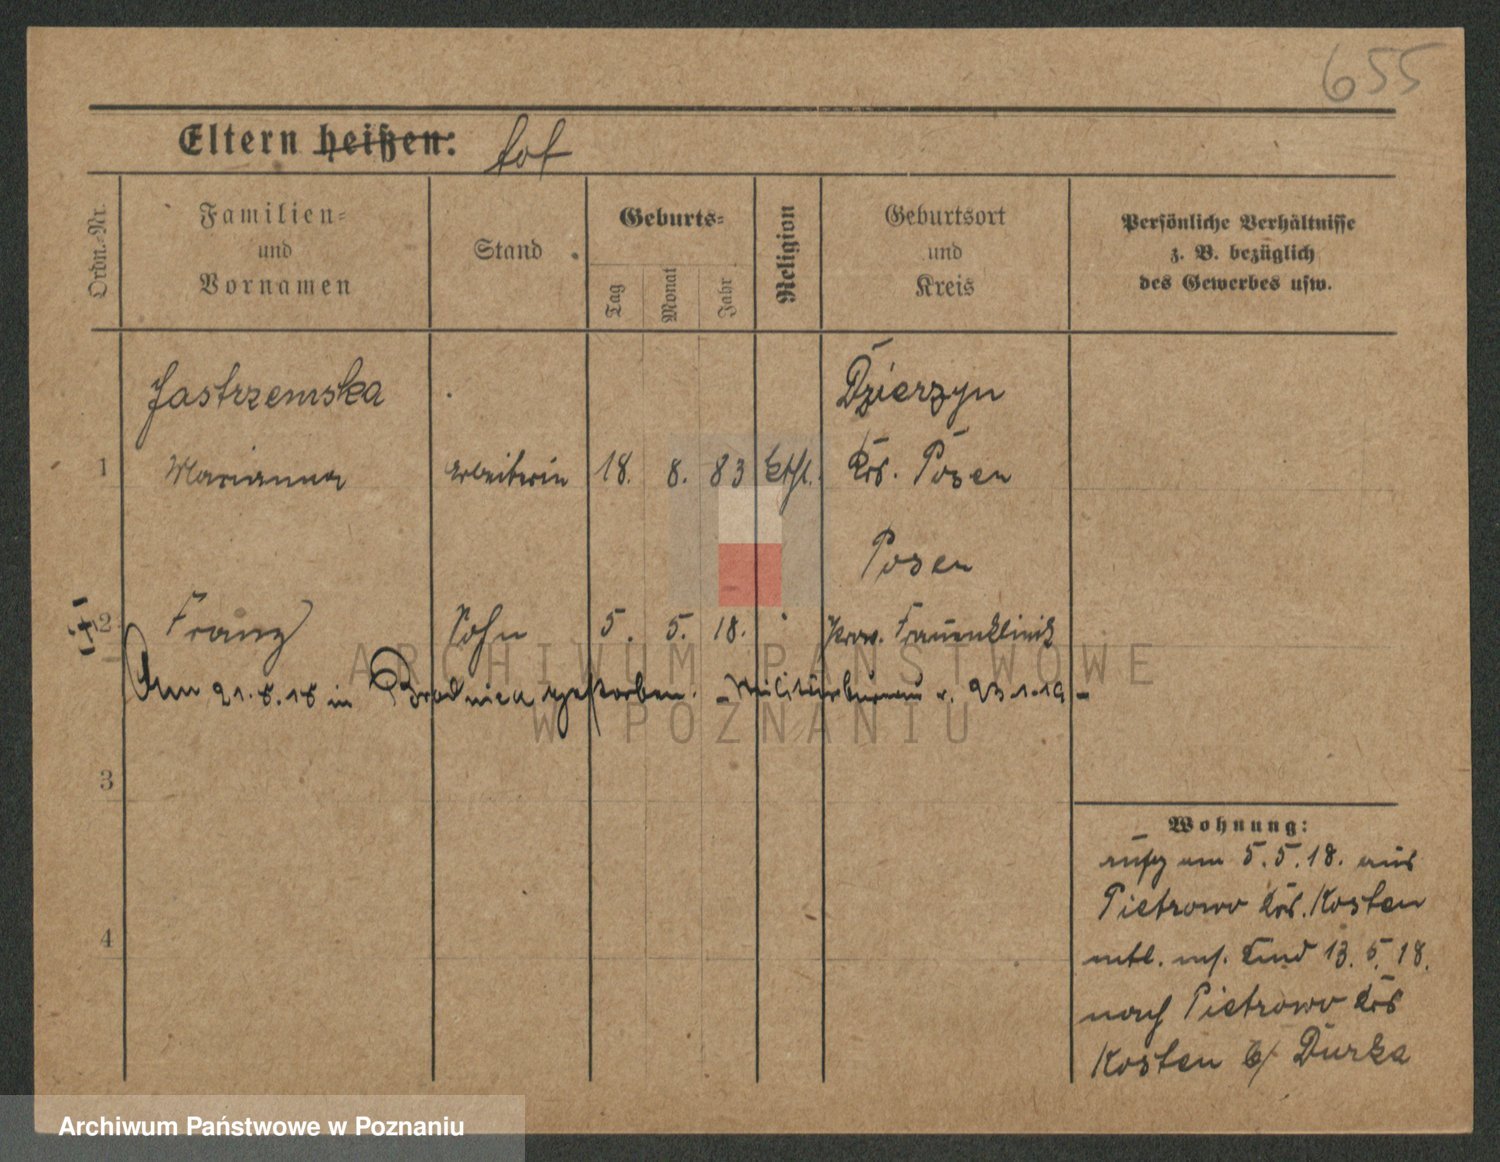 655
Eltern heißen: tot
Ordn.-Nr.
Familien-
und
Vornamen
Stand
Geburts-
Tag
Monat
Jahr
Religion
Geburtsort
und
Kreis
Persönliche Verhältnisse
z. B. bezüglich
des Gewerbes usw.
Jastrzemska
Dzierzyn
1 Marianna Arbeiterin 18. 8. 83 kthl. Krs. Posen
Posen
2 Franz Sohn 5. 5. 18. Prov. Frauenklinik
Am 21.8.18 in Brodnica gestorben. - Militärbureau v. 23.1.19 -
3
4
Wohnung:
am 5.5.18. aus
Pietrowo Krs. Kosten
Kind 13.5.18.
nach Pietrowo Krs
Kosten b/ Durka
ARCHIWUM PAŃSTWOWE
W POZNANIU
Archiwum Państwowe w Poznaniu